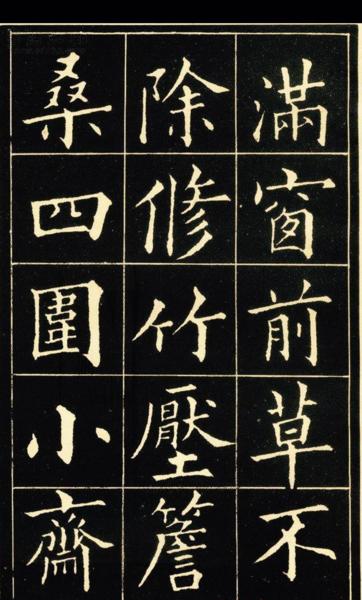 滿窗前草不
除修竹壓簷
桑四圍小齋